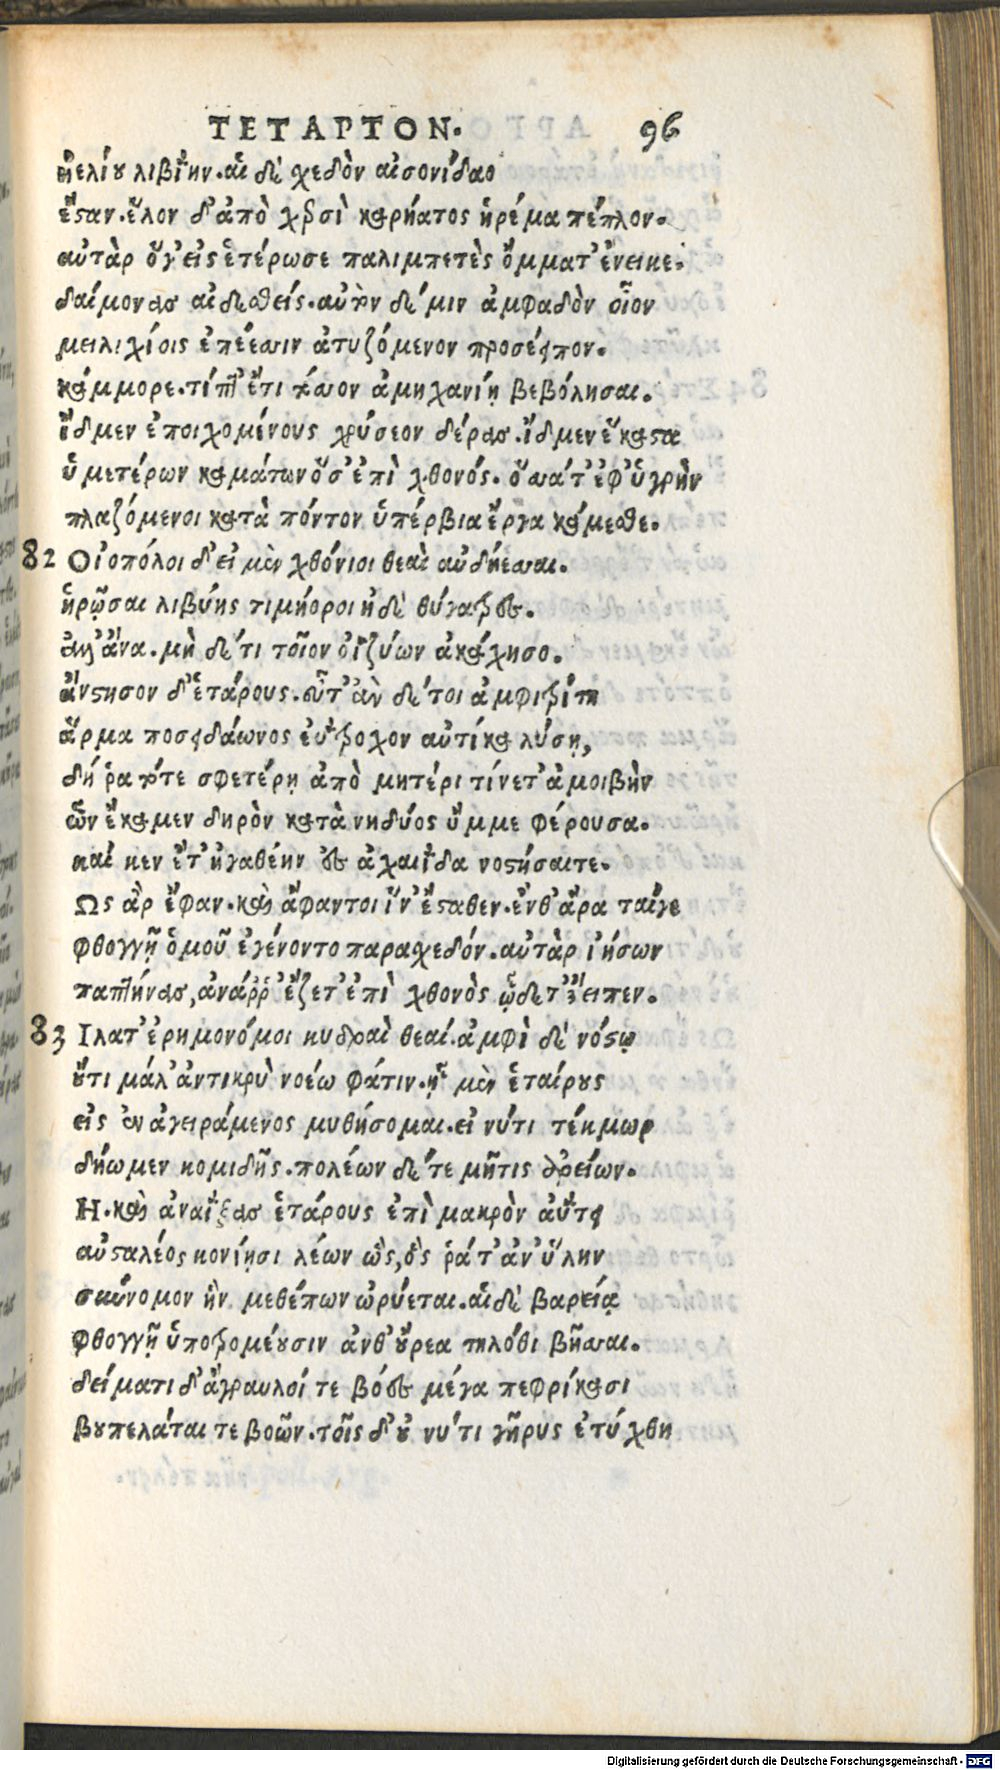 ΤΕΤΑΡΤΟΝ. 96
ἠελίου λιβύην. αἱ δὲ σχεδὸν αἰσονίδαο
ἔσταν. ἕλον δ' ἀπὸ χερσὶ καρήατος ἠρέμα πέπλον.
αὐτὰρ ὅγ' εἰς ἑτέρωσε παλιμπετὲς ὄμματ' ἔνεικε.
δαίμονας αἰδεσθείς. αὐτὸν δέ μιν ἀμφαδὸν οἶον
μειλιχίοις ἐπέεσσιν ἀτυζόμενον προσέειπον.
κάμμορε. τίπτ' ἔτι τόσσον ἀμηχανίῃ βεβόλησαι.
ἴδμεν ἐποιχομένους χρύσεον δέρας. ἴδμεν ἕκαστα
ὑμετέρων καμάτων ὅσ' ἐπὶ χθονός. ὅσσά τ' ἐφ' ὑγρὴν
πλαζόμενοι κατὰ πόντον ὑπέρβια ἔργα κάμεσθε.
82 Οἰοπόλοι δ' εἰ μὲν χθόνιοι θεαὶ αὐδήεσσαι.
ἡρῷσαι λιβύης τιμήοροι ἠδὲ θύγατρες.
ἀλλ' ἄνα. μὴ δέ τι τοῖον ὀϊζύων ἀκάχησο.
ἄνστησον δ' ἑτάρους. εὖτ' ἂν δέ τοι ἀμφιτρίτη
ἅρμα ποσειδάωνος ἐΰτροχον αὐτίκα λύσῃ,
δή ῥα τότε σφετέρῃ ἀπὸ μητέρι τίνετ' ἀμοιβὴν
ὧν ἔκαμεν δηρὸν κατὰ νηδύος ὔμμε φέρουσα.
καί κεν ἔτ' ἠγαθέην ἐς ἀχαιΐδα νοστήσαιτε.
Ως ἂρ ἔφαν. καὶ ἄφαντοι ἵν' ἔσταθεν. ἔνθ' ἄρα ταίγε
φθογγῇ ὁμοῦ ἐγένοντο παρασχεδόν. αὐτὰρ ἰήσων
παπτήνας, ἀνάρρ' ἕζετ' ἐπὶ χθονὸς ὧδέ τ' ἔειπεν.
83 Ιλατ' ἐρημονόμοι κυδραὶ θεαί. ἀμφὶ δὲ νόστῳ
οὔτι μάλ' ἀντικρὺ νοέω φάτιν. ἦ μὲν ἑταίρους
εἰς ἓν ἀγειράμενος μυθήσομαι. εἰ νύ τι τέκμωρ
δήωμεν κομιδῆς. πολέων δέ τε μῆτις ἀρείων.
Η. καὶ ἀναΐξας ἑτάρους ἐπὶ μακρὸν ἀΰτει
αὐσταλέος κονίῃσι λέων ὣς, ὅς ῥά τ' ἀν' ὕλην
σύννομον ἣν μεθέπων ὠρύεται. αἱ δὲ βαρείᾳ
φθογγῇ ὑποτρομέουσιν ἀνθ' οὔρεα τηλόθι βῆσσαι.
δείματι δ' ἄγραυλοί τε βόες μέγα πεφρίκασι
βουπελάται τε βοῶν. τοῖς δ' οὔ νύ τι γῆρυς ἐτύχθη
Digitalisierung gefördert durch die Deutsche Forschungsgemeinschaft - DFG